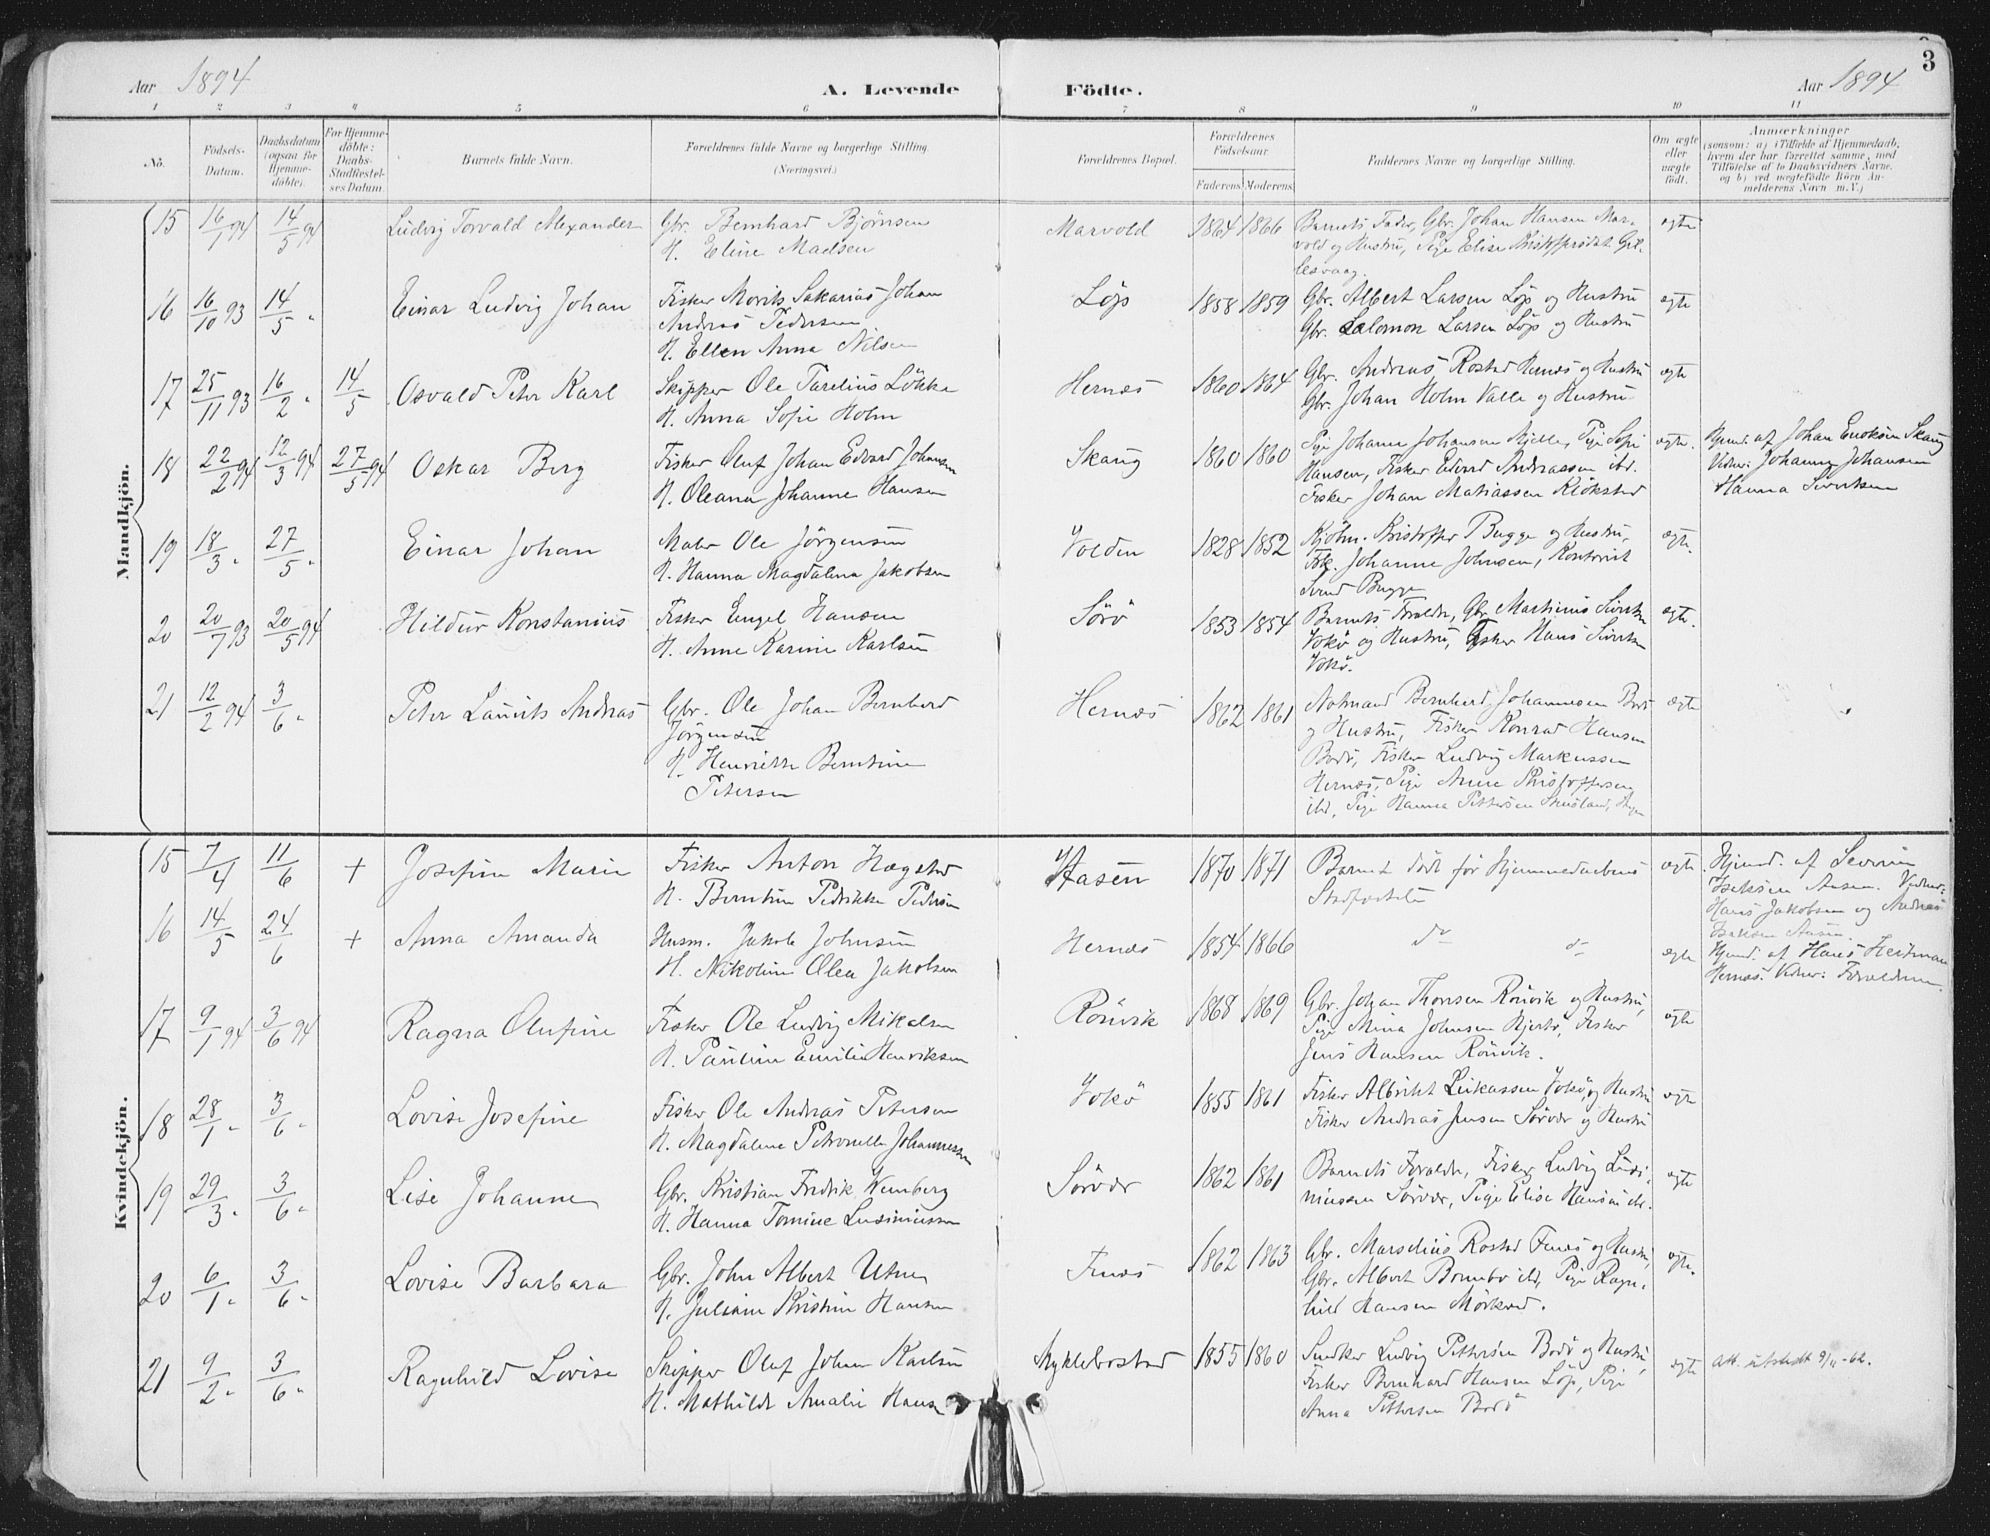 3
Aar 1894
A. Levende Födte.
Aar 1894
1 2 3 4 5 6 7 8 9 10 11
No.
Födsels-
Datum.
Daabsdatum
(ogsaa for
Hjemme-
döbte).
For Hjemme-
döbte:
Daabs-
Stadfæstel-
ses Datum.
Barnets fulde Navn.
Forældrenes fulde Navne og borgerlige Stilling.
(Næringsvei.)
Forældrenes Bopæl.
Forældrenes
Födselsaar.
Faderens Moderens
Faddernes Navne og borgerlige Stilling.
Om ægte
eller
uægte
födt.
Anmærkninger
(saasom: a) i Tilfælde af Hjemmedaab,
hvem der har forrettet samme, med
Tilföielse af to Daabsvidners Navne,
og b) ved uægtefödte Börn An-
melderens Navn m.V.)
Mandkjön.
15 16/1 94 14/5 94 Ludvig Torvald Alexander
Gbr. Bernhard Bjørnsen
H. Eline Madsen
Marvold 1864 1866
Barnets Fader, Gbr. Johan Hansen Mar-
vold og Hustru, Pige Elise
ægte
16 16/10 93 14/5 " Einar Ludvig Johan
Fisker Morits Sakarias Johan
Andreas Pedersen
H. Ellen Anna Nilsen
Løp 1858 1859
Gbr. Albert Larsen Löp og Hustru
Gbr. Salomon Larsen Löp og Hustru
ægte
17 25/11 93 16/2 " 14/5 Osvald Peter Karl
Skipper Ole Torelius Lökke
H. Anna Sofie Holm
Hernæs 1860 1864
Gbr. Andreas Rostad Hernæs og Hustru
Gbr. Johan Holm Valle og Hustru
ægte
18 22/2 94 12/3 94 27/5 94 Oskar Berg
Fisker Oluf Johan Edvard Johansen
H. Oleana Johanne Hansen
Skaug 1860 1860
Pige Johanna Johansen Mjelle, Pige Sofie
Hansen, Fisker Edvard Andreassen ibd.
Fisker Johan Matiassen Klökstad
ægte.
Hjmd. af Johan Enoksen Skaug
Vidner: Johanna Johansen
Hanna Sivertsen
19 18/3 " 27/5 " Einar Johan
Maler Ole Jörgensen
H. Hanna Magdalena Jakobsen
Volden 1828 1852
Kjöbm. Kristoffer Bugge og Hustru,
Frk. Johanne Johnsen, Kontorist
Svend Bugge
ægte.
20 20/7 93 20/5 94 Hildur Konstanius
Fisker Engel Hansen
H. Anne Karine Karlsen
Sörö 1853 1854
Barnets Foraldre, Gbr. Martinus Sivertsen
Vokö og Hustru, Fisker Hans Sivertsen
Vokö.
ægte.
21 12/2 94 3/6 " Peter Laurits Andreas
Gbr. Ole Johan Bernhard
Jörgensen
H. Henriette Berntine
Petersen
Hernæs 1862 1861
Notmand Bernhard Johannesen Bodö
og Hustru, Fisker Konrad Hansen
Bodö, Fisker Ludvig Markussen
Hernæs, Pige Anne Kristoffersen
ibd, Pige Hanna Pettersen
ægte
Kvindekjön.
15 7/4 11/6 + Josefine Marie
Fisker Anton Hægstad
H. Berntine Pedrikke Pedersen
Aasen 1870 1871
Barnet död för Hjemmedaabens
Stadfæstelse
ægte
Hjmd. af Severin
Isaksen Aasen. Vidner:
Hans Jakobsen og Andreas
Isaksen Aasen.
16 14/5 24/6 + Anna Amanda
Husm. Jakob Johnsen
H. Nikoline Olea Jakobsen
Hernæs 1854 1866
do do
ægte
Hjmd. af Hans Hertman
Hernæs. Vidner: Foraldrene.
17 9/1 94 3/6 94 Ragna Olufine
Fisker Ole Ludvig Mikalsen
H. Pauline Emilie Henriksen
Rönvik 1868 1869
Gbr. Johan Thonsen Rönvik og Hustru,
Pige Mina Johnsen Hjertö, Fisker
Jens Hansen Rönvik.
ægte
18 28/1 " 3/6 " Lovise Josefine
Fisker Ole Andreas Petersen
H. Magdalene Petronelle Johannessen
Vokö 1855 1861
Fisker Albrikt Lukassen Vokö, og Hustru
Fisker Andreas Jensen Sörvær og Hustru
ægte
19 29/3 " 3/6 " Lise Johanne
Gbr. Kristian Fredrik Wenberg
H. Hanna Tomine Ludimiussen
Sörvær 1862 1861
Barnets Foraldre, Fisker Ludvig Ludi-
miussen Sörvær, Pige Elise Hansen ibd.
ægte
20 6/1 " 3/6 " Lovise Barbara
Gbr. John Albert Utne
H. Juliane Kristine Hansen
Fnæs 1862 1863
Gbr. Marselius Rostad Fnæs og Hustru,
Gbr. Albert Bornebo ibd, Pige Ragn-
hild Hansen Mörkved.
ægte.
21 9/2 " 3/6 " Ragnhild Lovise
Skipper Oluf Johan Karlsen
H. Mathilde Amalie Hansen
Myklebostad 1855 1860
Snedker Ludvig Pettersen Bodö og Hustru,
Fisker Bernhard Hansen Löp, Pige
Anna Pettersen Bodö
ægte
Att. utstedt 9/4-62.